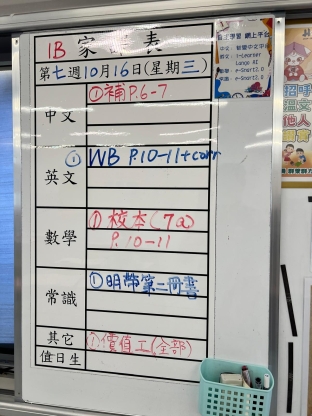 1B 家課表
第七週10月16日(星期三)
中文
①補P.6-7
英文
① WB P.10-11+corr
數學
①校本(7a)
P.10-11
常識
①明帶第二冊書
其它
①價值工(全部)
值日生
網上平台
i-Learner
Lungo AI
e-Smart2.0
e-Smart2.0
招呼
溫文
他人